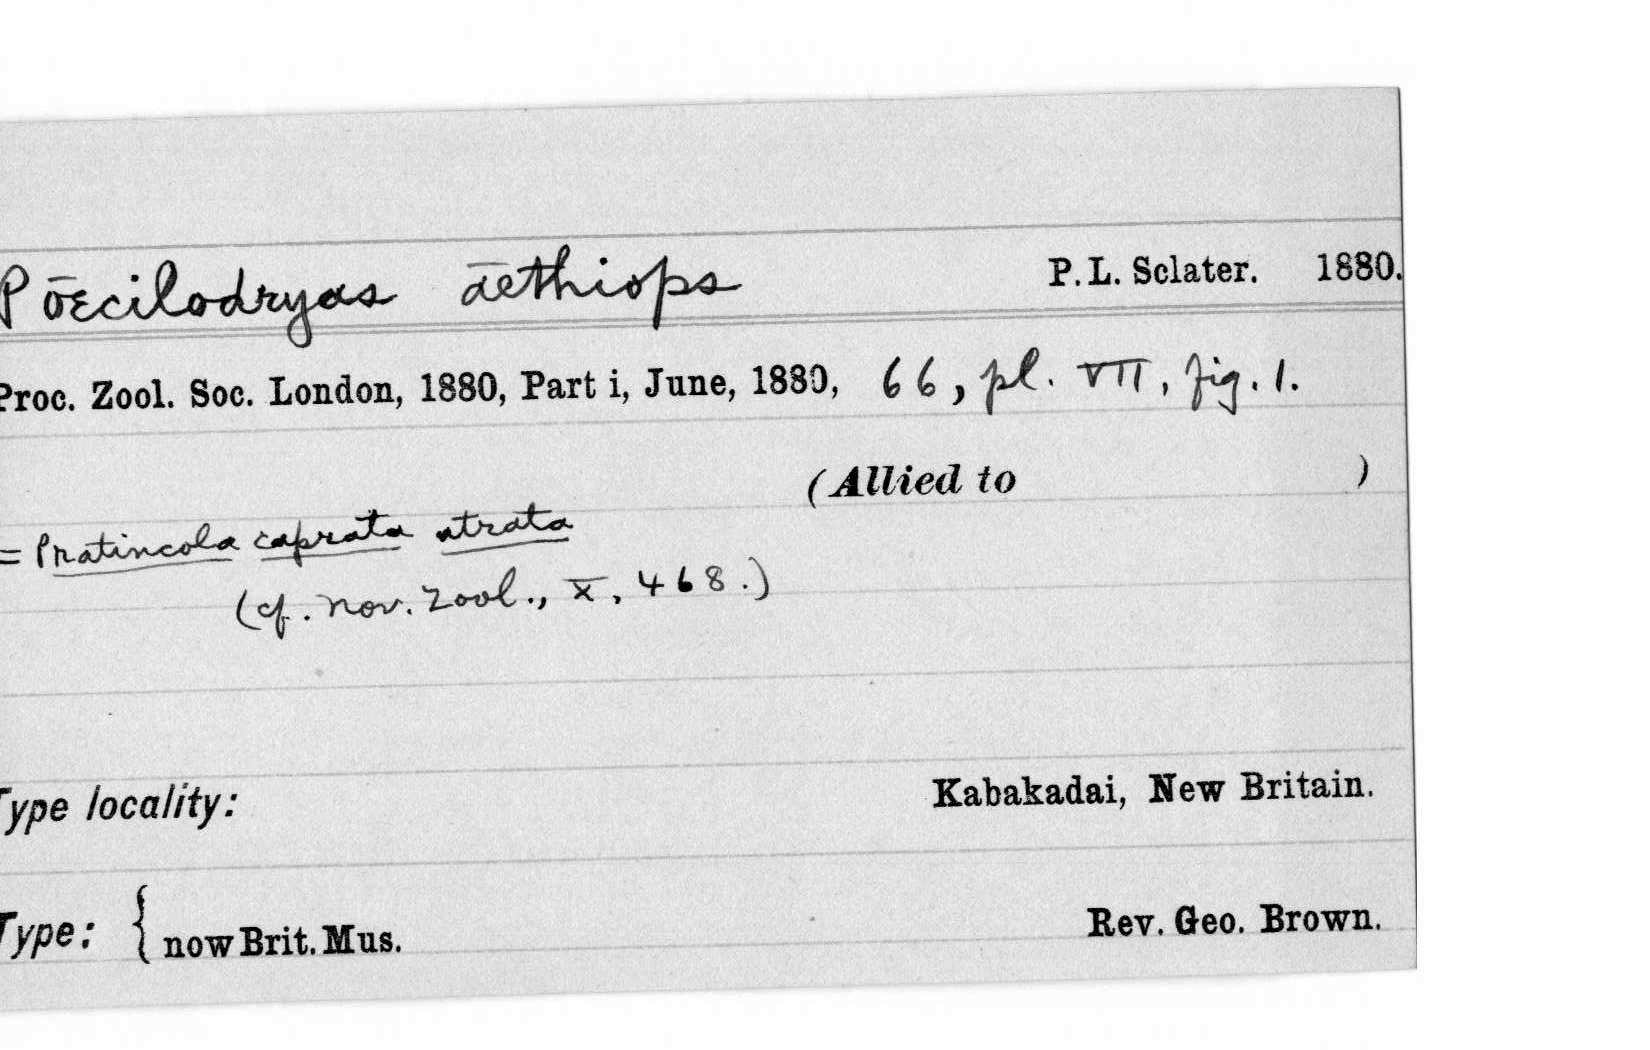 Poecilodryas aethiops P. L. Sclater. 1880.
Proc. Zool. Soc. London, 1880, Part i, June, 1880, 66, pl. VII, fig. 1.
(Allied to )
= Pratincola caprata atrata
(cf. Nov. Zool., X, 468.)
Type locality: Kabakadai, New Britain.
Type: { now Brit. Mus. Rev. Geo. Brown.